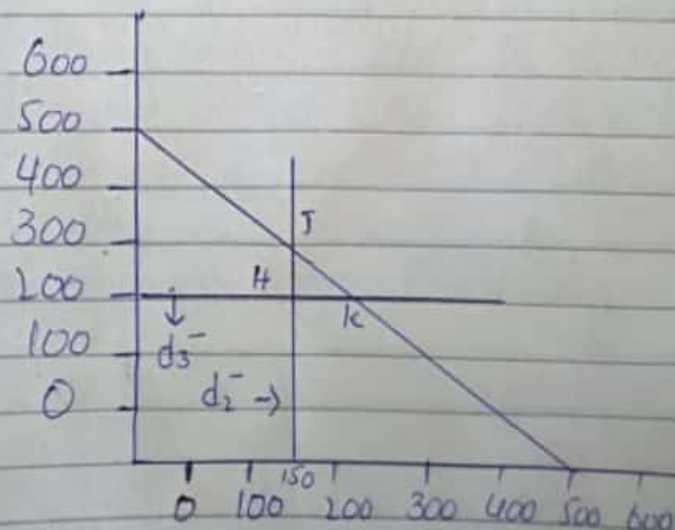 600
500
400
300 J
200 H
K
100 d₃⁻
0 d₂⁻ →
150
0 100 200 300 400 500 600